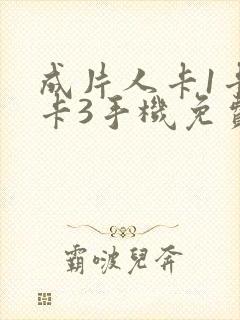 成片人卡1卡
卡3手機免費
霸啵兒奔